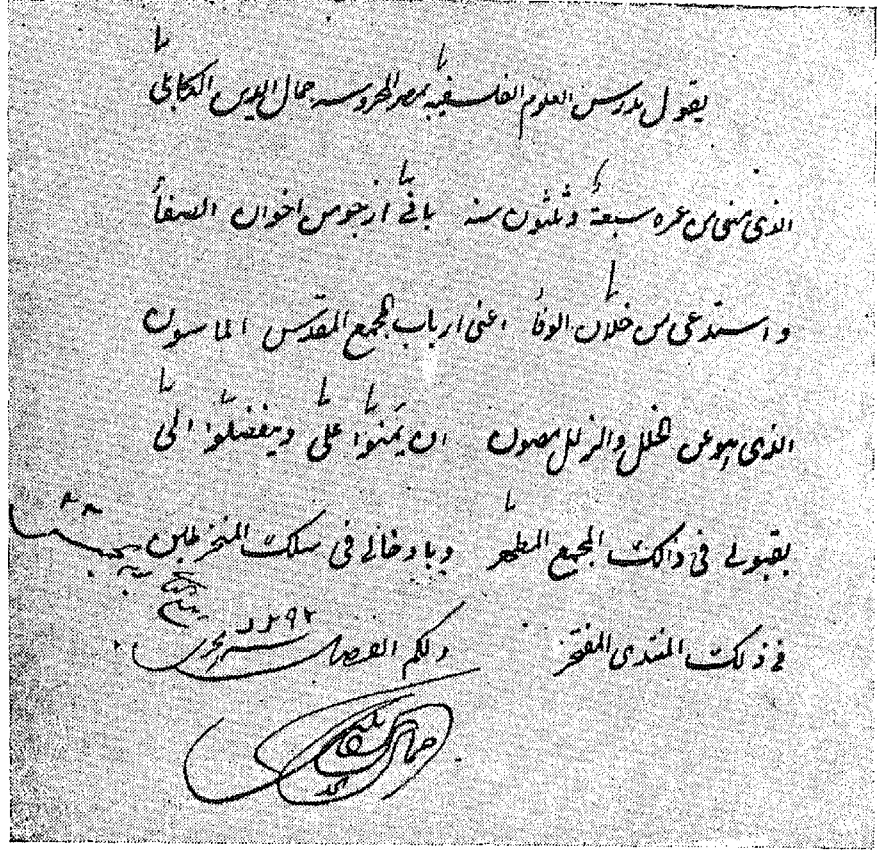 يقول مدرس العلوم الفلسفية بمصر المحروسه جمال الدين الكابلى
الذى مضى من عمره سبعة وثلثون سنه بانى ارجو من اخوان الصفا
واستدعى من خلان الوفا اعنى ارباب المجمع المقدس الماسون
الذى هو عن الخلل والزلل مصون ان يمنوا على ويتفضلوا الى
بقبولى فى ذالك المجمع المطهر وبادخالى فى سلك المنخرطين
فى ذلك المنتدى المفتخر ولكم الفضل
١٢٩٢
جمال